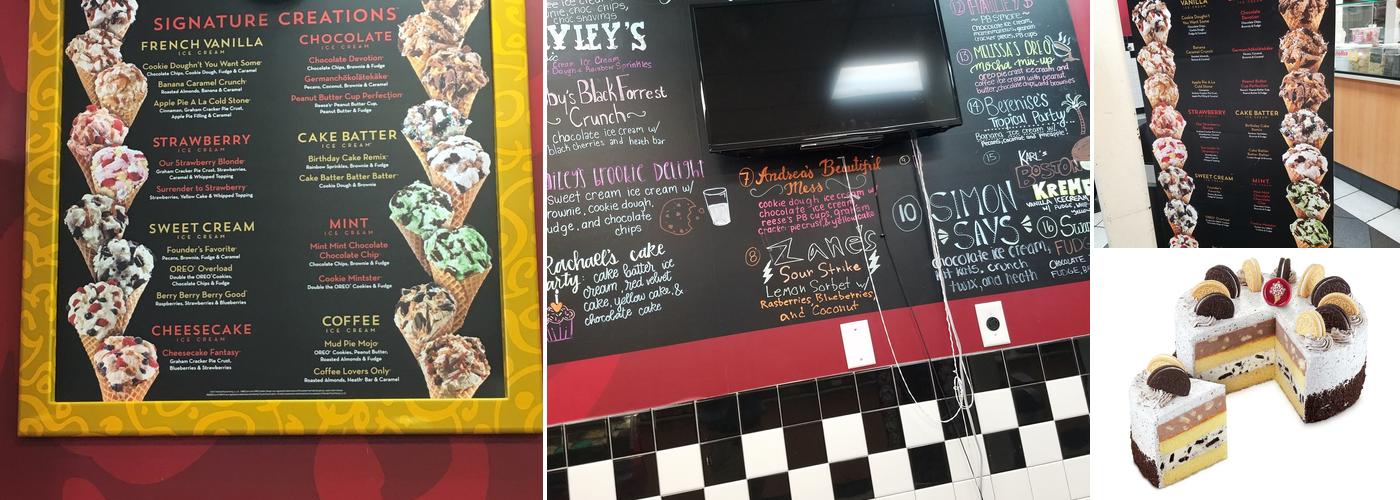 SIGNATURE CREATIONS
FRENCH VANILLA
ICE CREAM
Cookie Doughn't You Want Some
Chocolate Chips, Cookie Dough, Fudge & Caramel
Banana Caramel Crunch
Roasted Almonds, Banana & Caramel
Apple Pie A La Cold Stone
Cinnamon, Graham Cracker Pie Crust,
Apple Pie Filling & Caramel
STRAWBERRY
ICE CREAM
Our Strawberry Blonde
Graham Cracker Pie Crust, Strawberries,
Caramel & Whipped Topping
Surrender to Strawberry
Strawberries, Yellow Cake & Whipped Topping
SWEET CREAM
ICE CREAM
Founder's Favorite
Pecans, Brownie, Fudge & Caramel
OREO Overload
Double the OREO Cookies,
Chocolate Chips & Fudge
Berry Berry Berry Good
Raspberries, Strawberries & Blueberries
CHEESECAKE
ICE CREAM
Cheesecake Fantasy
Graham Cracker Pie Crust,
Blueberries & Strawberries
CHOCOLATE
ICE CREAM
Chocolate Devotion
Chocolate Chips, Brownie & Fudge
Germanchökolätekäke
Pecans, Coconut, Brownie & Caramel
Peanut Butter Cup Perfection
Reese's Peanut Butter Cup,
Peanut Butter & Fudge
CAKE BATTER
ICE CREAM
Birthday Cake Remix
Rainbow Sprinkles, Brownie & Fudge
Cake Batter Batter Batter
Cookie Dough & Brownie
MINT
ICE CREAM
Mint Mint Chocolate
Chocolate Chip
Chocolate Chips, Brownie & Fudge
Cookie Mintster
Double the OREO Cookies & Fudge
COFFEE
ICE CREAM
Mud Pie Mojo
OREO Cookies, Peanut Butter,
Roasted Almonds & Fudge
Coffee Lovers Only
Roasted Almonds, Heath Bar & Caramel
choc chips,
choc shavings
YLEY'S
Cream Ice Cream
Dough & Rainbow Sprinkles
by's Black Forrest
Crunch
chocolate ice cream w/
black cherries and heath bar
ailey's brookie Delight
sweet ice cream w/
rownie, cookie dough,
udge, and chocolate
chips
Rachael's cake
arty: cake batter ice
cream, red velvet
cake, yellow cake &
chocolate cake
7 Andrea's Beautiful
Mess
cookie dough ice cream
chocolate ice cream
reese's PB cups, graham
cracker pie crust & yellow cake
8 Zane's
Sour Strike
Lemon Sorbet w/
Rasberries, Blueberries,
and Coconut
9
10
SIMON
SAYS
chocolate ice cream,
kit kats, crunch
twix, and heath
12 HARLEY'S
PB S'more
13 MELISSA'S OREO
mocha mix-up
oreo pie crust ice cream and
coffee ice cream with peanut
butter, chocolate chips, and brownies
14 Berenise's
Tropical Party
Banana ice cream w/
pecans, coconut and pineapple!
15
KARL'S
BOSTON
KREME
VANILLA ICECREAM
W/ FUDGE,
16
FUDG
CHOCOLATE
FUDGE,
VANILLA
STRAWBERRY
CAKE BATTER
SWEET CREAM
MINT